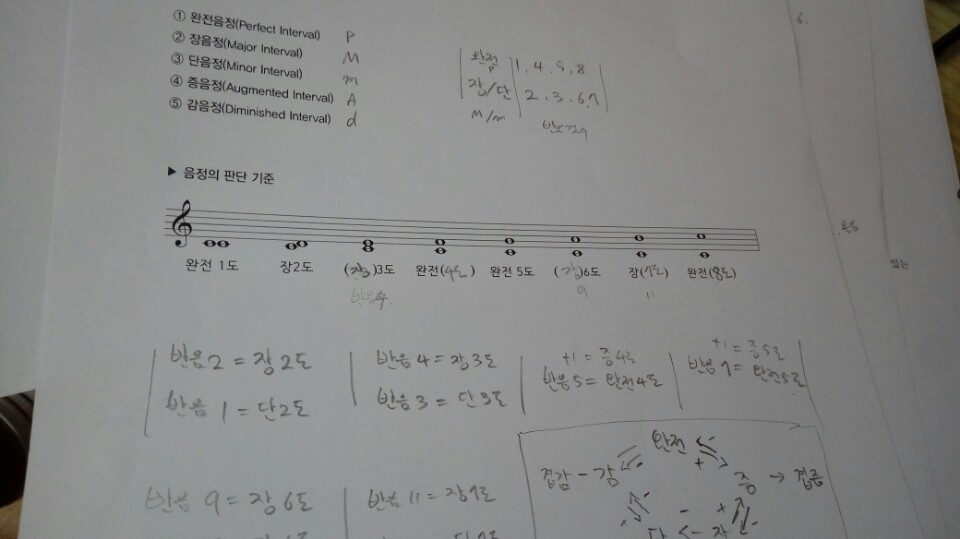 ① 완전음정(Perfect Interval) P
② 장음정(Major Interval) M
③ 단음정(Minor Interval) m
④ 증음정(Augmented Interval) A
⑤ 감음정(Diminished Interval) d
완전 1. 4. 5. 8
P
장/단 2. 3. 6. 7
M/m
6.
▶ 음정의 판단 기준
완전 1도 장2도 (장)3도 완전(4도) 완전 5도 (장)6도 장(7도) 완전(8도)
반음4 9 11
있는
반음2 = 장2도
반음 1 = 단2도
반음 4 = 장3도
반음 3 = 단3도
+1 = 증4도
반음5 = 완전4도
+1 = 증5도
반음 7 = 완전5도
반음 9 = 장6도
반음 11 = 장7도
완전
겹감 - 감
증 → 겹증
단 장